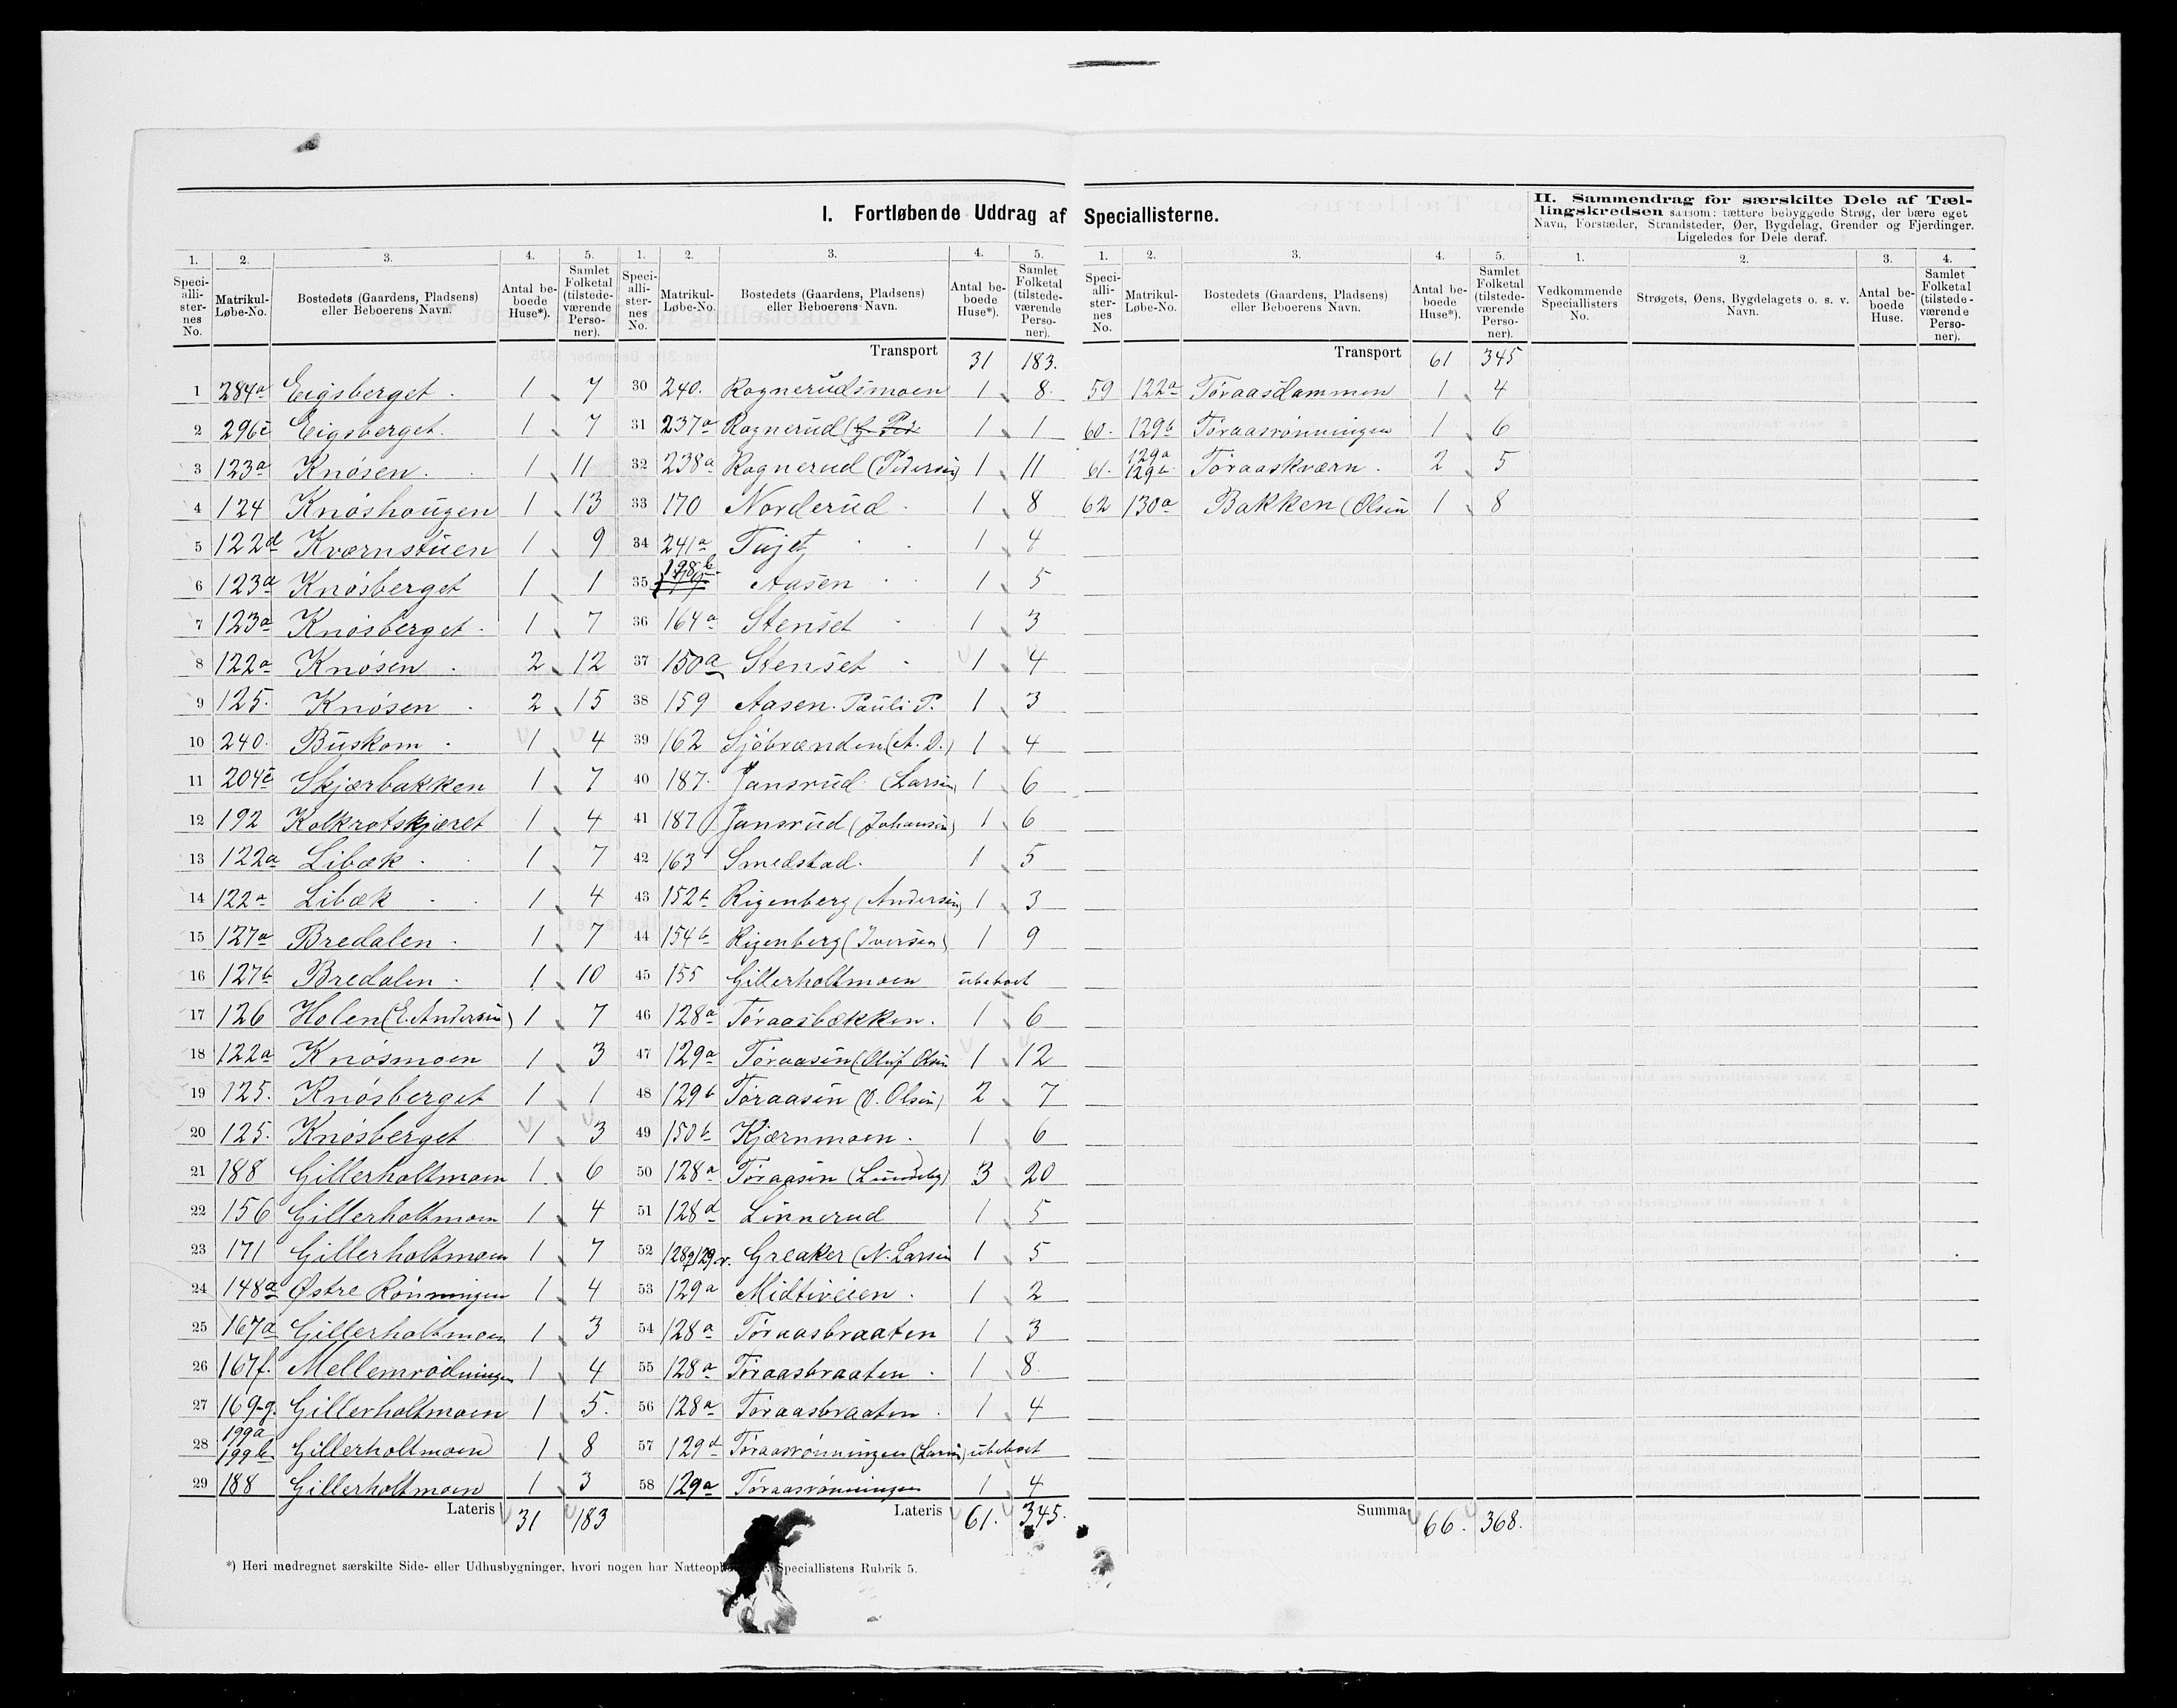 I. Fortløbende Uddrag af Speciallisterne.
II. Sammendrag for særskilte Dele af Tæl-
lingskredsen saasom: tættere bebyggede Strøg, der bære eget
Navn, Forstæder, Strandsteder, Øer, Bygdelag, Grender og Fjerdinger.
Ligeledes for Dele deraf.
1. 2. 3. 4. 5. 1. 2. 3. 4. 5. 1. 2. 3. 4. 5. 1. 2. 3. 4.
Speciallisternes No. Matrikul-Løbe-No. Bostedets (Gaardens, Pladsens) eller Beboerens Navn. Antal beboede Huse*). Samlet Folketal (tilstedeværende Personer).
Speciallisternes No. Matrikul-Løbe-No. Bostedets (Gaardens, Pladsens) eller Beboerens Navn. Antal beboede Huse*). Samlet Folketal (tilstedeværende Personer).
Speciallisternes No. Matrikul-Løbe-No. Bostedets (Gaardens, Pladsens) eller Beboerens Navn. Antal beboede Huse*). Samlet Folketal (tilstedeværende Personer).
Vedkommende Speciallisters No. Strøgets, Øens, Bygdelagets o. s. v. Navn. Antal beboede Huse. Samlet Folketal (tilstedeværende Personer).
1 284a Eigsberget 1 7
2 296c Eigsberget. 1 7
3 123a Knøsen 1 11
4 124 Knøshougen 1 13
5 122d Kværnstuen 1 9
6 123a Knøsberget 1 1
7 123a Knøsberget 1 7
8 122a Knøsen 2 12
9 125. Knøsen 2 15
10 240. Buskom 1 4
11 204c Skjærbakken 1 7
12 192 Kolkrotskjæret 1 4
13 122a Libæk 1 7
14 122a Libæk 1 4
15 127a Bredalen 1 7
16 127b Bredalen 1 10
17 126 Holen (E. Andersen) 1 7
18 122a Knøsmoen 1 3
19 125. Knøsberget 1 1
20 125. Knøsberget 1 3
21 188 Gillerholtmoen 1 6
22 156 Gillerholtmoen 1 4
23 171 Gillerholtmoen 1 7
24 148a Østre Rønningen 1 4
25 167a Gillerholtmoen 1 3
26 167f. Mellemrødningen 1 4
27 169g. Gillerholtmoen 1 5.
28 199a 199b. Gillerholtmoen 1 8
29 188 Gillerholtmoen 1 3
Lateris 31 183
Transport 31 183.
30 240. Rognerudsmoen 1 8
31 237a Rognerud 1 1
32 238a Rognerud (Pedersen) 1 11
33 170 Norderud 1 8
34 241a Tujet 1 4
35 198b Aasen 1 5
36 164a Stenset 1 3
37 150a Stenset 1 4
38 159 Aasen. Pauli P. 1 3
39 162 Sjøbrænden (A. D.) 1 4
40 187. Jansrud (Larsen) 1 6
41 187 Jansrud (Johansen) 1 6
42 163 Smedstad. 1 5
43 152b Rigenberg (Andersen) 1 3
44 154b Rigenberg (Iversen) 1 9
45 155 Gillerholtmoen ubeboet
46 128a Tøraasbækken. 1 6
47 129a Tøraasen (Oluf Olsen 1 12
48 129b Tøraasen (O. Olsen) 2 7
49 150b Kjærnmoen. 1 6
50 128a Tøraasen (Lundeby) 3 20
51 128d Linnerud 1 5
52 Greaker (N. Larsen 1 5
53 129a Midtiveien. 1 2
54 128a Tøraasbraaten 1 3
55 128a Tøraasbraaten 1 8.
56 128a Tøraasbraaten 1 4
57 129d Tøraasrønningen (Larsen) ubeboet
58 129a Tøraasrønningen 1 4
Lateris 61. 345.
Transport 61 345
59 122a Tøraasdammen 1 4
60. 129b Tøraasrønningen 1 6
61. 129a 129b Tøraaskværn. 2 5
62 130a Bakken (Olsen 1 8
Summa 66. 368.
*) Heri medregnet særskilte Side- eller Udhusbygninger, hvori nogen har Speciallistens Rubrik 5.